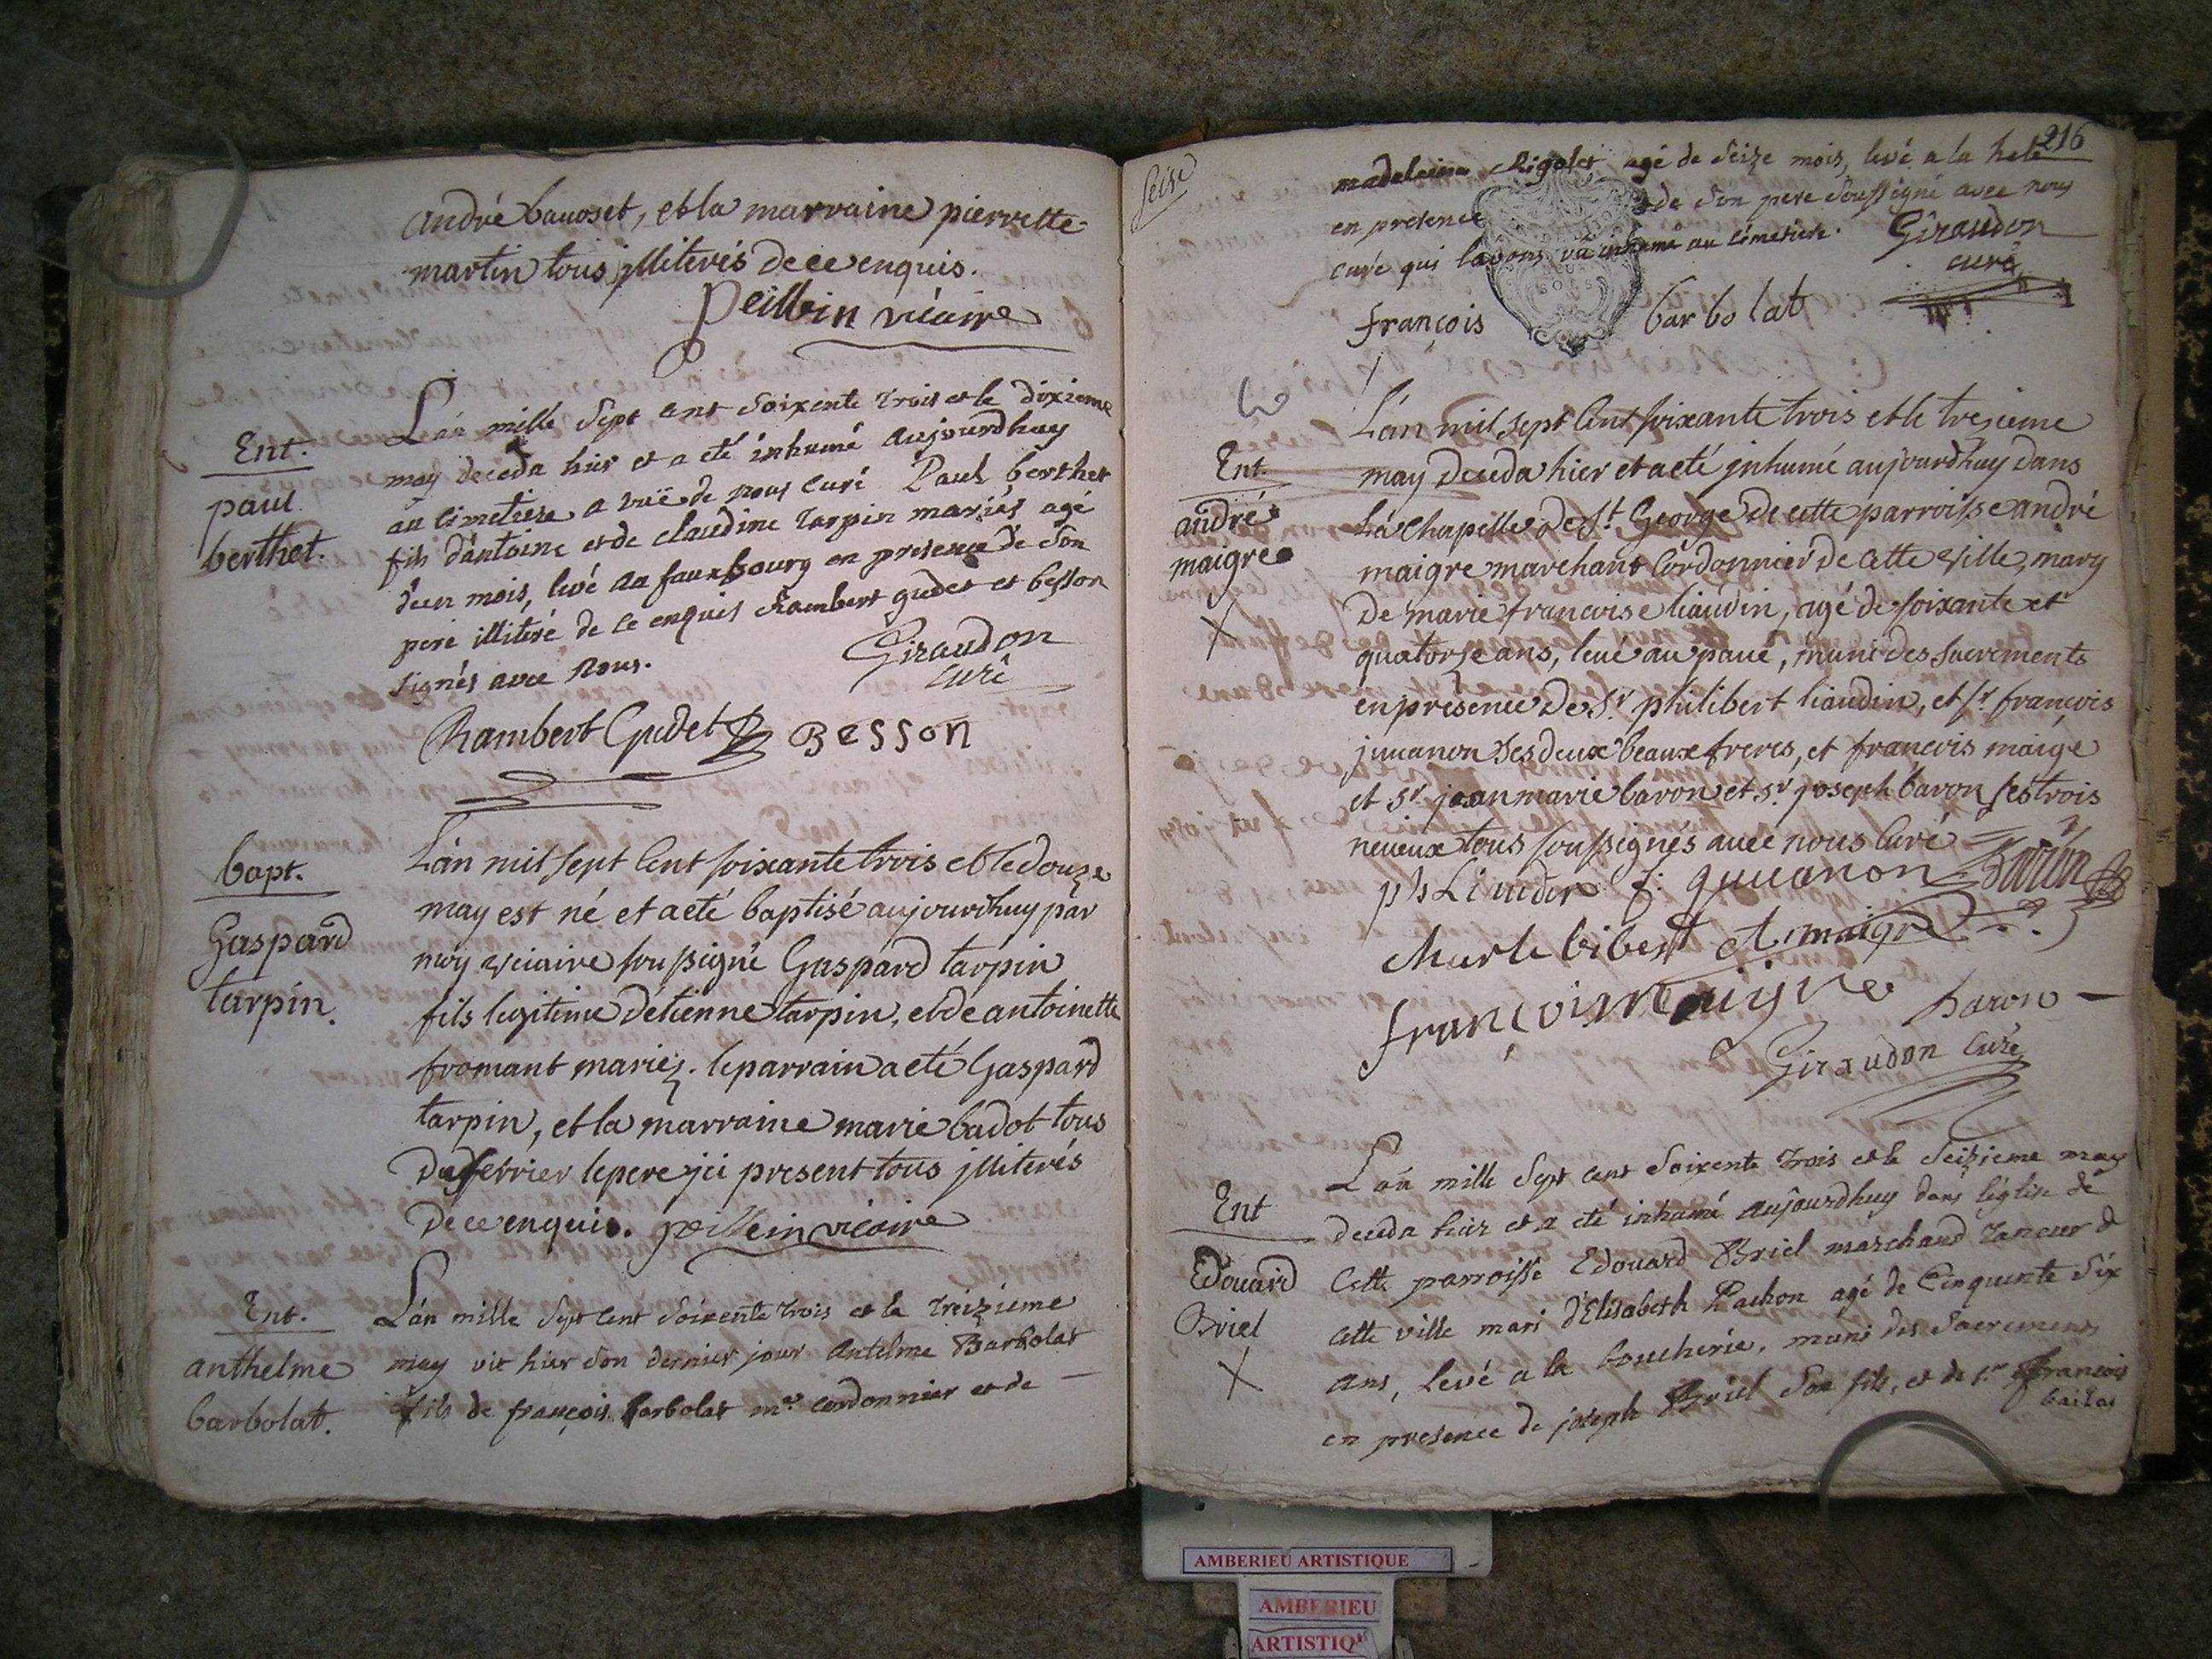 andré bauoset, et la marraine pierrette
martin tous jlliterés de ce enquis.
peillein vicaire
Ent.
paul
berthet.
L'an mille Sept cent Soixente trois et le dixieme
may deceda hier et a eté inhumé aujourdhuy
au cimetiere a vuë de nous curé Paul berthet
fils d'antoine et de claudine tarpin mariés agé
d'un mois, levé au fauxbourg en presence de son
pere illiteré de ce enquis Rambert gudet et besson
signés avec nous.
Giraudon
curé
Rambert Gudet Besson
bapt.
Gaspard
tarpin.
L'an mil sept cent soixante trois et le douze
may est né et a eté baptisé aujourdhuy par
moy vicaire soussigné Gaspard tarpin
fils legitime d'etienne tarpin, et de antoinette
fromant mariez. le parrain a eté Gaspard
tarpin, et la marraine marie badot tous
du ferrier le pere jci present tous jlliterés
de ce enquis. peillein vicaire
Ent.
anthelme
barbolat.
L'an mille Sept cent Soixente trois et le treizieme
may vit hier son dernier jour Antelme Barbolat
fils de françois barbolat me cordonnier et de
Seize
216
madeleine Rigolet agé de seize mois, levé a la hale
en presence de son pere soussigné avec nous
curé qui l'avons vu inhumé au cimetiere.
Giraudon
curé
françois barbolat
Ent
andré
maigre
L'an mil sept cent soixante trois et le tresieme
may deceda hier et a eté jnhumé aujourdhuy dans
La chapelle de St George de cette parroisse andré
maigre marchant cordonnier de cette ville, mary
de marie francoise liaudin, agé de soixante et
quatorse ans, leué au paué, muni des sacrements
en presence de Sr philibert liaudin, et sr françois
juuanon ses deux beaux freres, et francois maigre
et sr jean marie baron et sr joseph baron ses trois
neueux tous soussignés auec nous curé
f. juuanon Baron
maigre
françois maigre baron
Giraudon curé
Ent
Edouard
Briel
L'an mille Sept cent Soixente trois et le Seizieme may
deceda hier et a eté inhumé aujourdhuy dans l'église de
cette parroisse Edouard Briel marchand tanneur de
cette ville mari d'Elisabeth Pachon agé de Cinquente Six
ans, levé a la boucherie, muni des Sacrements
en presence de joseph Briel son fils, et de sr francois
AMBERIEU ARTISTIQUE
AMBERIEU
ARTISTIQ